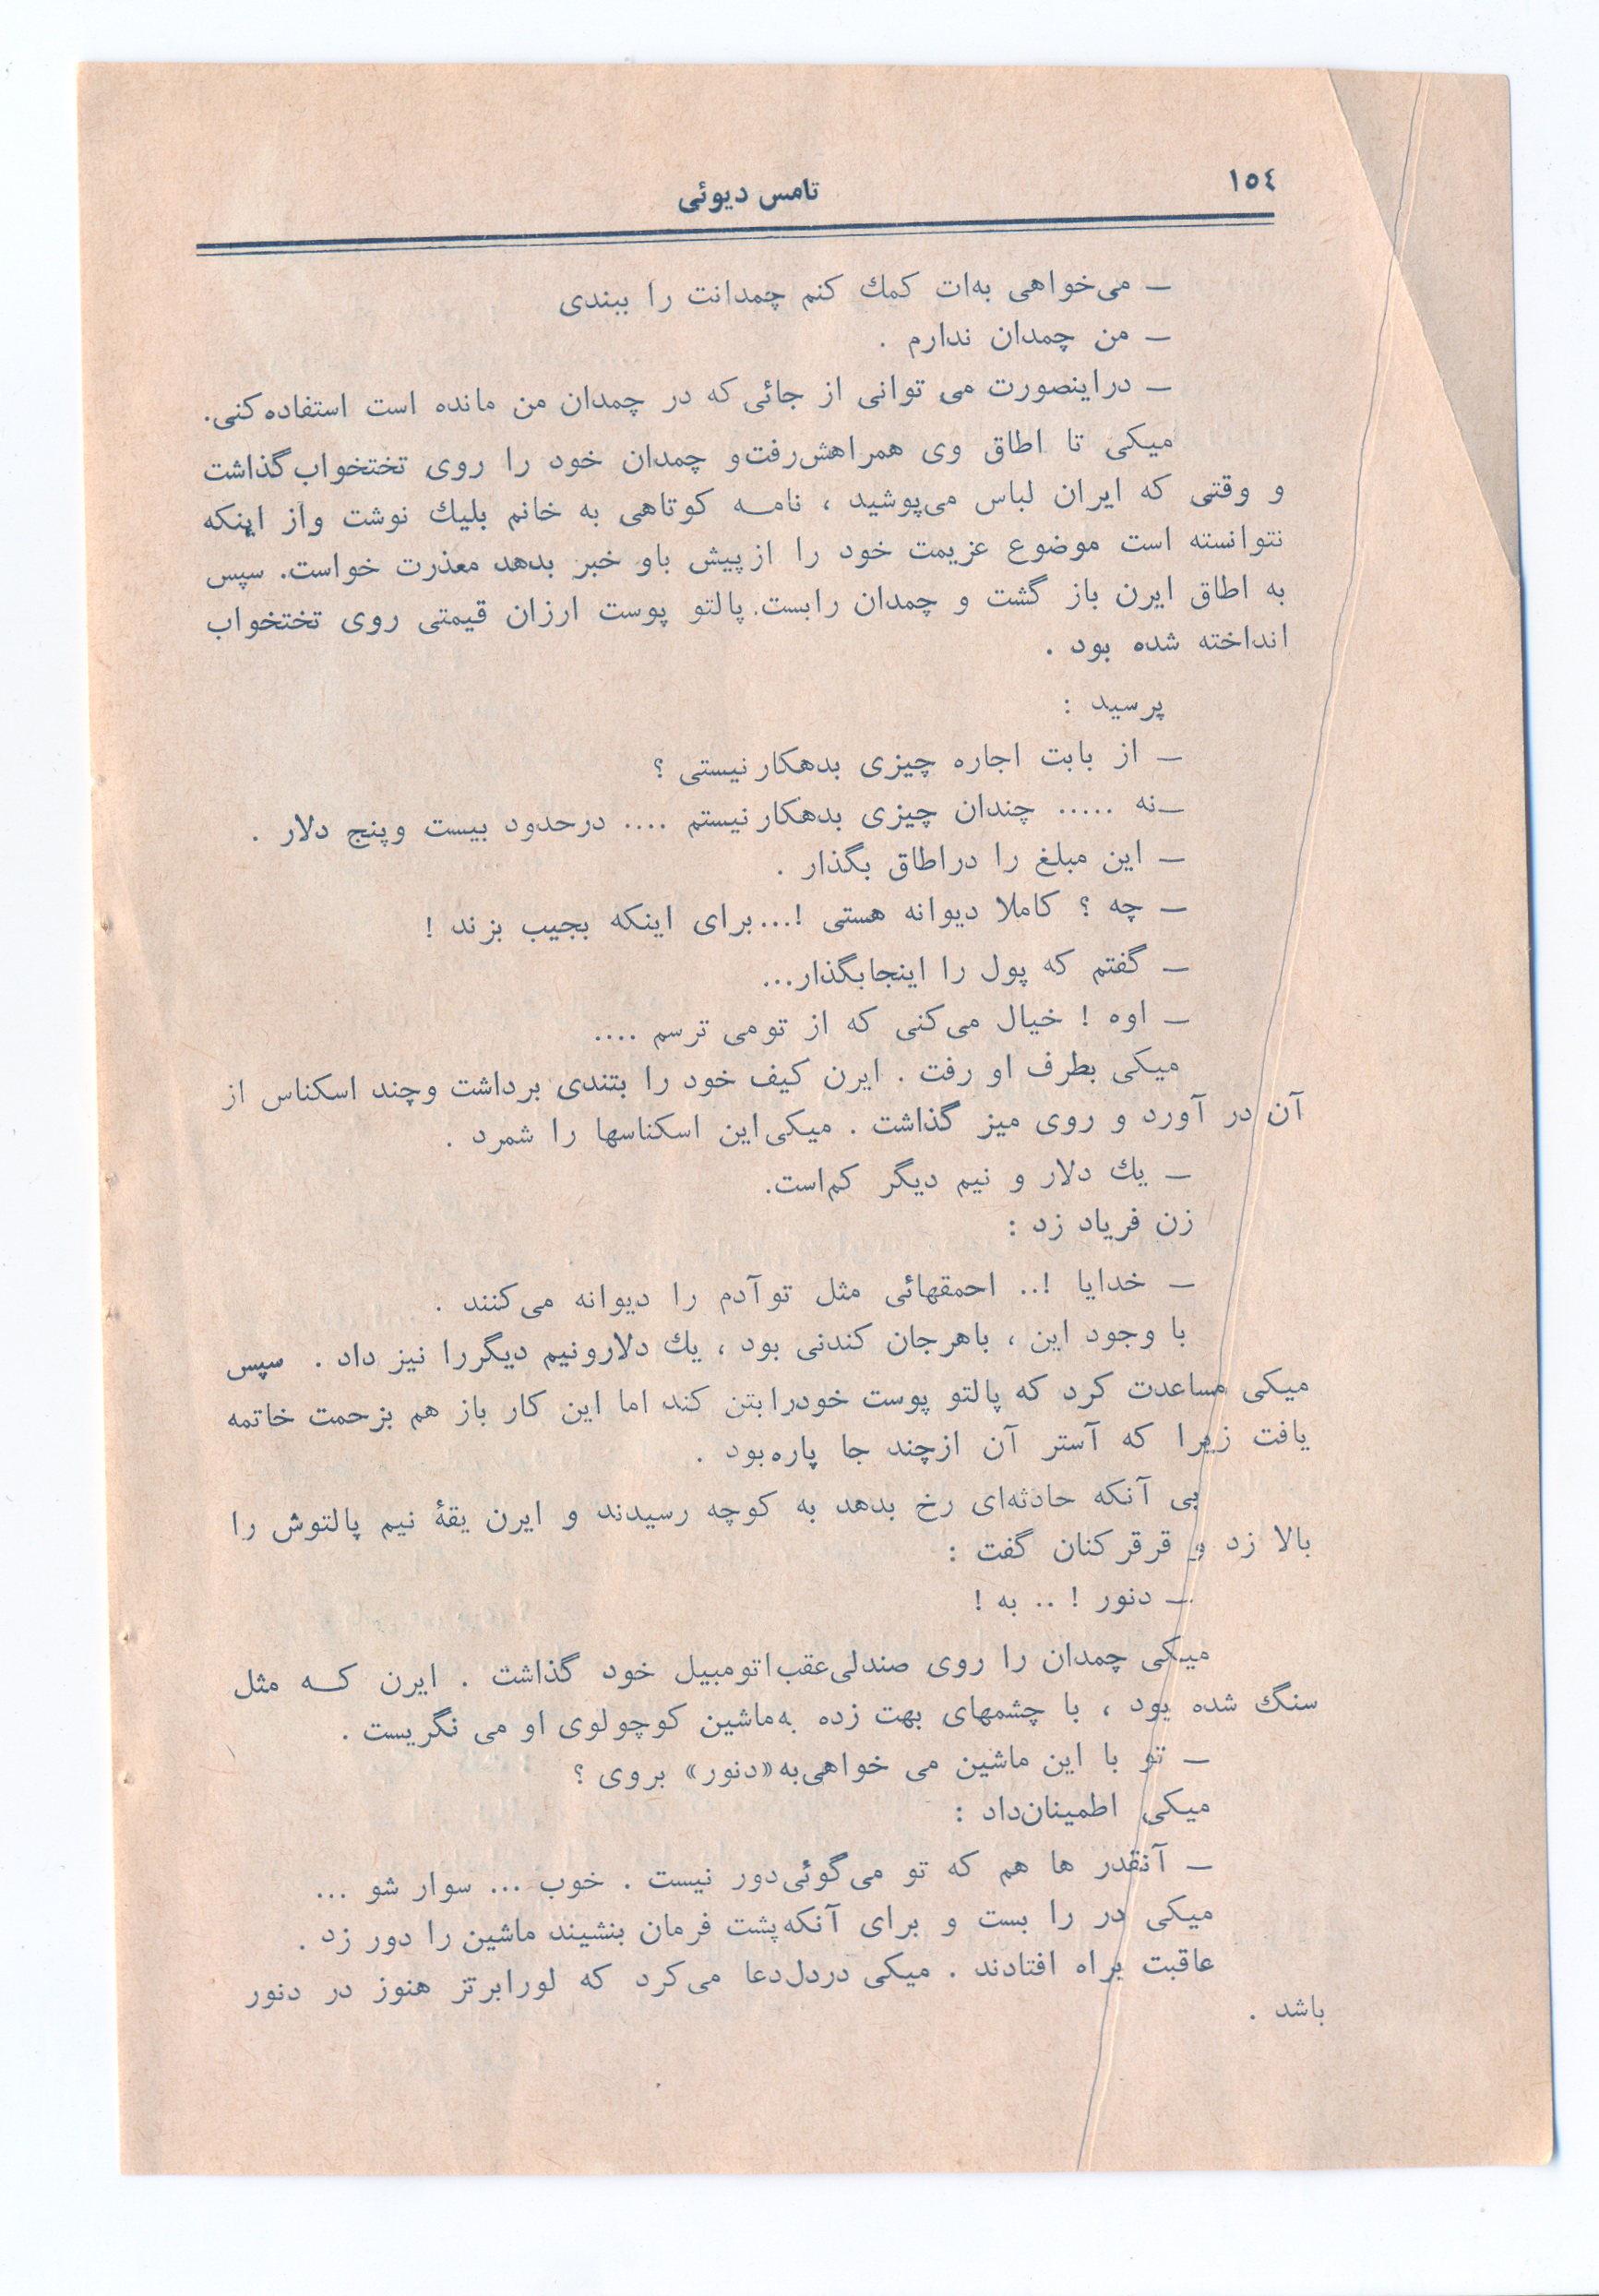 ١٥٤
تامس دیوئی
— می‌خواهی به‌ات کمك کنم چمدانت را ببندی
— من چمدان ندارم .
— دراینصورت می توانی از جائی که در چمدان من مانده است استفاده کنی.
میکی تا اطاق وی همراهش رفت و چمدان خود را روی تختخواب گذاشت
و وقتی که ایران لباس می‌پوشید ، نامــه کوتاهی به خانم بلیك نوشت واز اینکه
نتوانسته است موضوع عزیمت خود را از پیش باو خبر بدهد معذرت خواست. سپس
به اطاق ایرن باز گشت و چمدان رابست. پالتو پوست ارزان قیمتی روی تختخواب
انداخته شده بود .
پرسید :
— از بابت اجاره چیزی بدهکار نیستی ؟
— نه ..... چندان چیزی بدهکار نیستم .... درحدود بیست وپنج دلار .
— این مبلغ را دراطاق بگذار .
— چه ؟ کاملا دیوانه هستی !... برای اینکه بجیب بزند !
— گفتم که پول را اینجابگذار...
— اوه ! خیال می‌کنی که از تو می ترسم ....
میکی بطرف او رفت . ایرن کیف خود را بتندی برداشت وچند اسکناس از
آن در آورد و روی میز گذاشت . میکی این اسکناسها را شمرد .
— یك دلار و نیم دیگر کم‌است.
زن فریاد زد :
— خدایا !.. احمقهائی مثل تو آدم را دیوانه می‌کنند .
با وجود این ، باهرجان کندنی بود ، یك دلارونیم دیگررا نیز داد . سپس
میکی مساعدت کرد که پالتو پوست خودرا بتن کند اما این کار باز هم بزحمت خاتمه
یافت زیرا که آستر آن ازچند جا پاره بود .
بی آنکه حادثه‌ای رخ بدهد به کوچه رسیدند و ایرن یقهٔ نیم پالتوش را
بالا زد و قرقر کنان گفت :
— دنور ! .. به !
میکی چمدان را روی صندلی عقب اتومبیل خود گذاشت . ایرن کــه مثل
سنگ شده بود ، با چشمهای بهت زده به‌ماشین کوچولوی او می نگریست .
— تو با این ماشین می خواهی به «دنور» بروی ؟
میکی اطمینان‌داد :
— آنقدر ها هم که تو می‌گوئی دور نیست . خوب ... سوار شو ...
میکی در را بست و برای آنکه پشت فرمان بنشیند ماشین را دور زد .
عاقبت براه افتادند . میکی دردل دعا می‌کرد که لورابرتز هنوز در دنور
باشد .